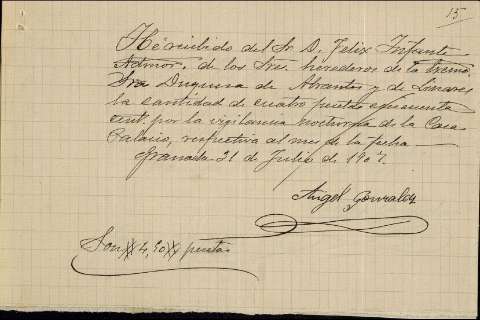 15
He recibido del Sr. D. Felix Infante
Admor. de los Sres. herederos de la Excma.
Sra Duquesa de Abrantes y de Linares
la cantidad de cuatro pesetas cincuenta
cent. por la vigilancia nocturna de la Casa
Palacio, respectiva al mes de la fecha
Granada 31 de Julio de 1907.
Angel Gonzalez
Son 4,50 pesetas